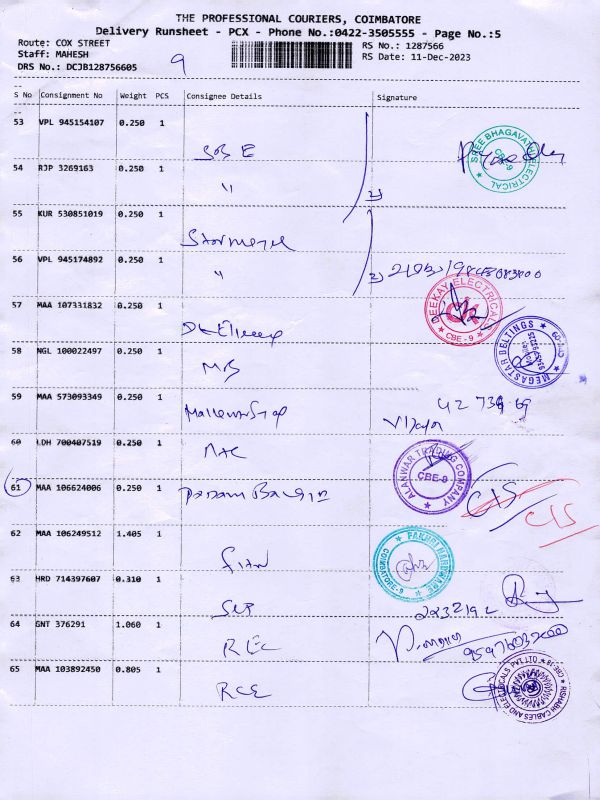 THE PROFESSIONAL COURIERS, COIMBATORE
Delivery Runsheet - PCX - Phone No.:0422-3505555 - Page No.:5
Route: COX STREET RS No.: 1287566
Staff: MAHESH RS Date: 11-Dec-2023
DRS No.: DCJB128756605 9
S No Consignment No Weight PCS Consignee Details Signature
53 VPL 945154107 0.250 1
SBE
SREE BHAGAVATHI ELECTRICAL CBE-9
54 RJP 3269163 0.250 1
"
55 KUR 530851019 0.250 1
56 VPL 945174892 0.250 1
"
DEEKAY ELECTRICAL CBE - 9
57 MAA 107331832 0.250 1
MEGASTAR BELTINGS
58 NGL 100022497 0.250 1
MB
59 MAA 573093349 0.250 1
Vijaya
60 LDH 700407519 0.250 1
ALANWAR TRADING COMPANY CBE-9
61 MAA 106624006 0.250 1
CIS
CIS
62 MAA 106249512 1.405 1
FAKHRI HARDWARE COIMBATORE-9
63 HRD 714397607 0.310 1
64 GNT 376291 1.060 1
REC
65 MAA 103892450 0.805 1
RCE
RISHABH CABLES AND ELECTRICALS PVT.LTD. CBE-18